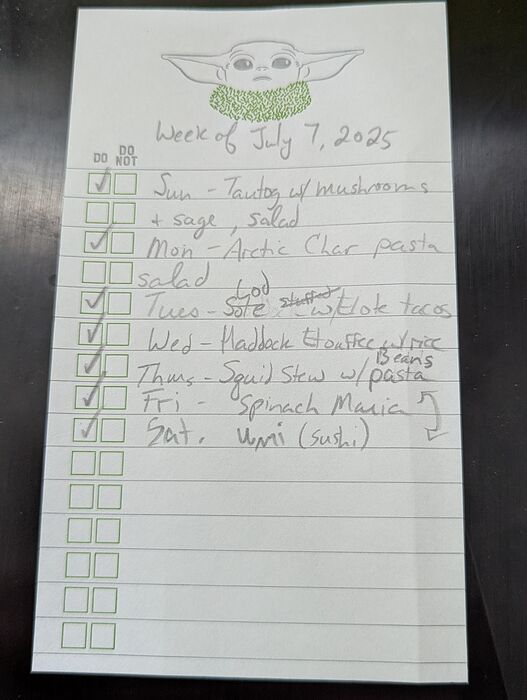 Week of July 7, 2025
DO
DO NOT
Sun - Tautog w/ mushrooms
+ sage, salad
Mon - Arctic Char pasta
salad
Cod
Tues - Sole stuffed w/ Elote tacos
Wed - Haddock Etouffee w/ rice
Beans
Thurs - Squid Stew w/ pasta
Fri - Spinach Maria
Sat. Umi (sushi)